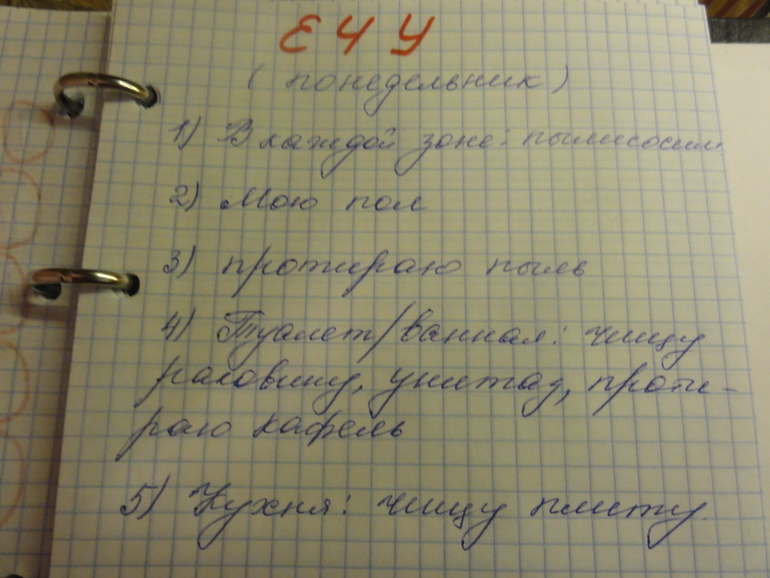 ЕЧУ
(понедельник)
1) В каждой зоне: пылесосим
2) Мою пол
3) протираю пыль
4) Туалет/ванная: чищу
раковину, унитаз, проти-
раю кафель
5) Кухня: чищу плиту.